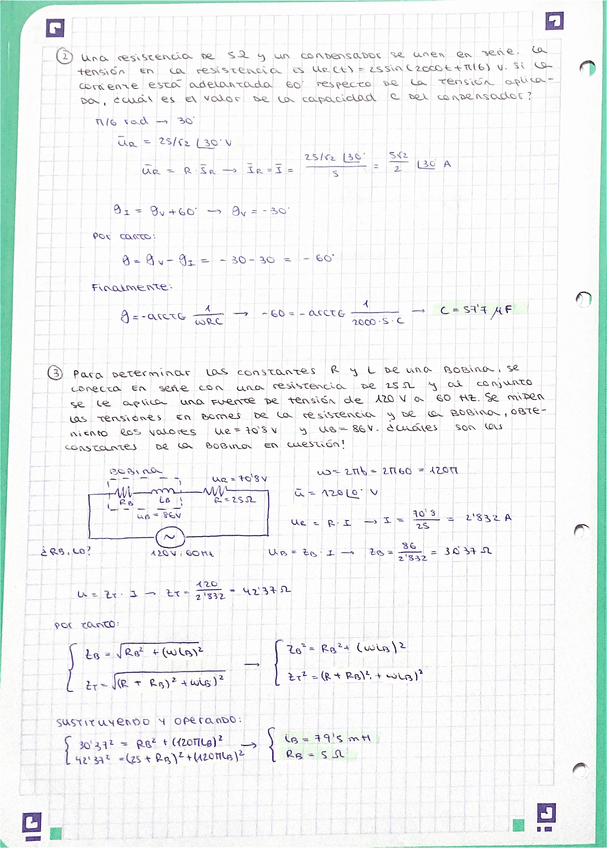 ② una resistencia de 5Ω y un condensador se unen en serie. La
tensión en la resistencia es uR(t) = 25 sin(2000t + π/6) V. Si la
corriente está adelantada 60° respecto de la tensión aplica-
da, ¿cuál es el valor de la capacidad C del condensador?
π/6 rad → 30°
ūR = 25/√2 ∠30° V
ūR = R · ĪR → ĪR = Ī = (25/√2 ∠30°)/5 = 5√2/2 ∠30° A
φI = φV + 60° → φV = -30°
Por tanto:
φ = φV - φI = -30 - 30 = -60°
Finalmente:
φ = -arctg 1/ωRC → -60 = -arctg 1/(2000·5·C) → C = 57'7 μF
③ Para determinar las constantes R y L de una bobina, se
conecta en serie con una resistencia de 25Ω y al conjunto
se le aplica una fuente de tensión de 120 V a 60 Hz. Se miden
las tensiones en bornes de la resistencia y de la bobina, obte-
niento los valores uR = 70'8 V y uB = 86V. ¿cuáles son las
constantes de la bobina en cuestión?
BOBINA
RB LB
uB = 86V
uR = 70'8V
R = 25Ω
120V, 60Hz
ω = 2πf = 2π60 = 120π
ū = 120∠0° V
uR = R · I → I = 70'8/25 = 2'832 A
¿RB, LB?
uB = ZB · I → ZB = 86/2'832 = 30'37 Ω
u = ZT · I → ZT = 120/2'832 = 42'37 Ω
por tanto:
ZB = √(RB² + (ωLB)²) → ZB² = RB² + (ωLB)²
ZT = √((R + RB)² + ωLB)²) → ZT² = (R + RB)² + ωLB)²
Sustituyendo y operando:
30'37² = RB² + (120πLB)² → LB = 79'5 mH
42'37² = (25 + RB)² + (120πLB)² RB = 5 Ω